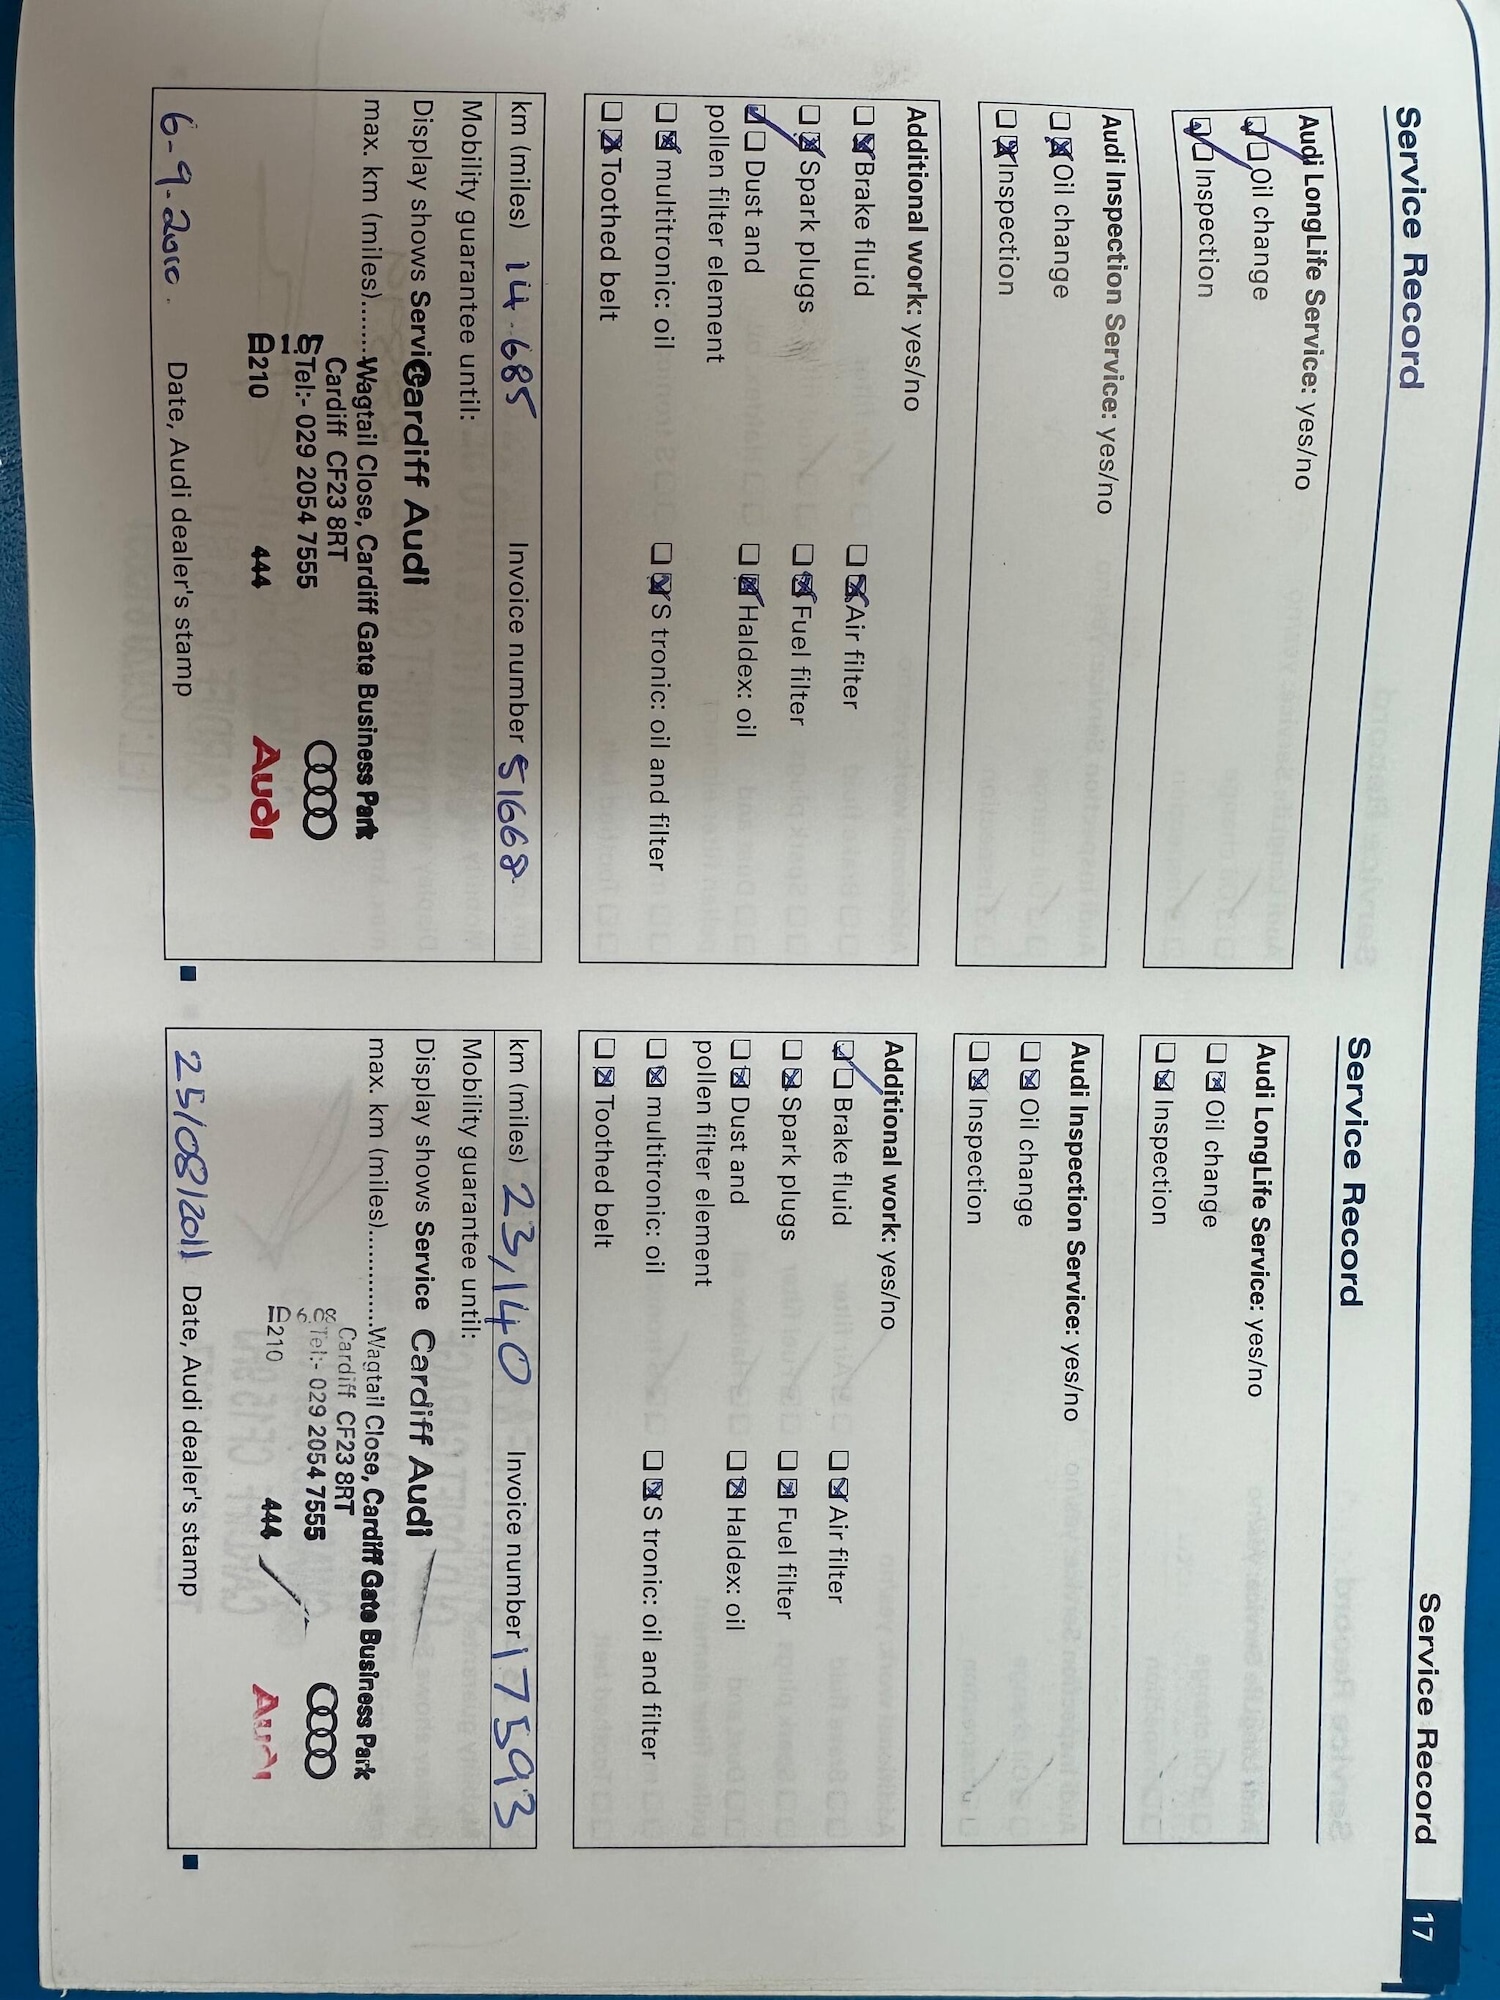 Service Record 17
Service Record
Audi LongLife Service: yes/no
Oil change
Inspection
Audi Inspection Service: yes/no
Oil change
Inspection
Additional work: yes/no
Brake fluid Air filter
Spark plugs Fuel filter
Dust and Haldex: oil
pollen filter element
multitronic: oil S tronic: oil and filter
Toothed belt
km (miles) 14 685 Invoice number 51668
Mobility guarantee until:
Display shows Servic Cardiff Audi
max. km (miles)...... Wagtail Close, Cardiff Gate Business Park
Cardiff CF23 8RT
Tel:- 029 2054 7555
210 444 Audi
6-9-2010. Date, Audi dealer's stamp
Service Record
Audi LongLife Service: yes/no
Oil change
Inspection
Audi Inspection Service: yes/no
Oil change
Inspection
Additional work: yes/no
Brake fluid Air filter
Spark plugs Fuel filter
Dust and Haldex: oil
pollen filter element
multitronic: oil S tronic: oil and filter
Toothed belt
km (miles) 23,140 Invoice number 17593
Mobility guarantee until:
Display shows Service Cardiff Audi
max. km (miles).............Wagtail Close, Cardiff Gate Business Park
Cardiff CF23 8RT
Tel:- 029 2054 7555
210 444 Audi
25/08/2011 Date, Audi dealer's stamp